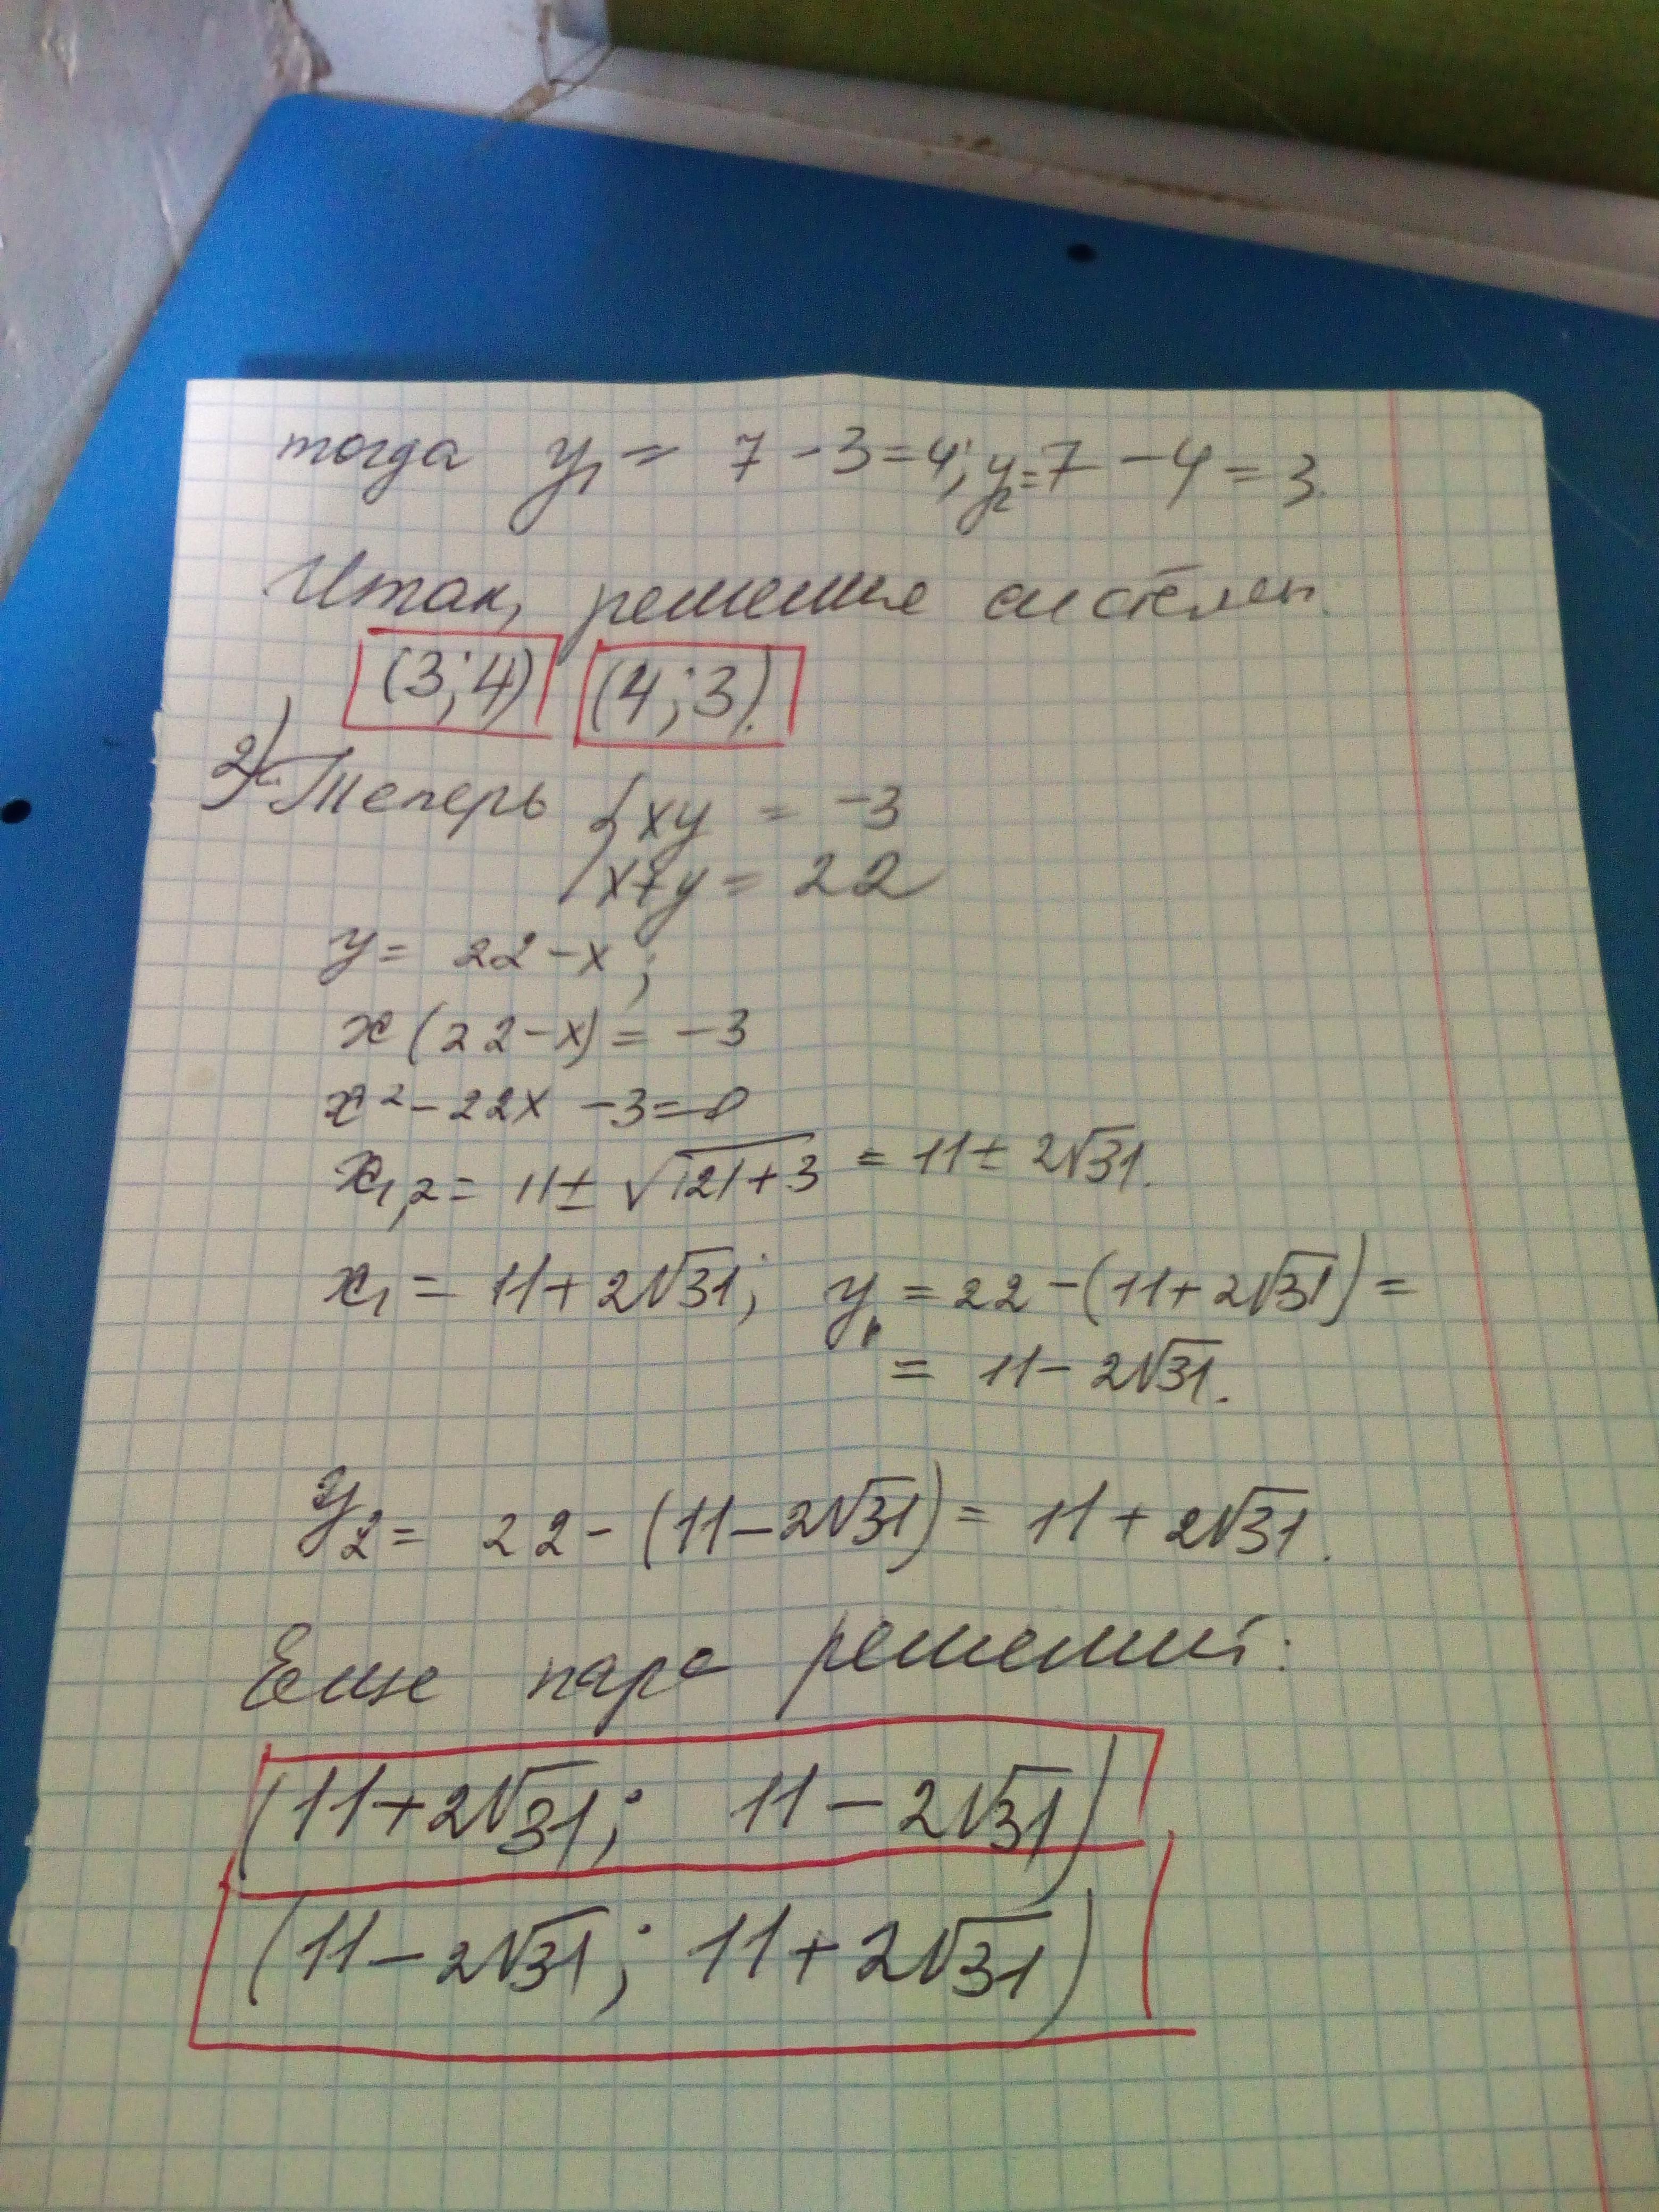 тогда y₁ = 7 - 3 = 4; y₂ = 7 - 4 = 3.
Итак, решение системы
(3; 4) (4; 3).
2) Теперь { xy = -3
x + y = 22
y = 22 - x;
x(22 - x) = -3
x² - 22x - 3 = 0
x₁,₂ = 11 ± √121 + 3 = 11 ± 2√31.
x₁ = 11 + 2√31; y₁ = 22 - (11 + 2√31) =
= 11 - 2√31.
y₂ = 22 - (11 - 2√31) = 11 + 2√31.
Еще пара решений:
(11 + 2√31; 11 - 2√31)
(11 - 2√31; 11 + 2√31)